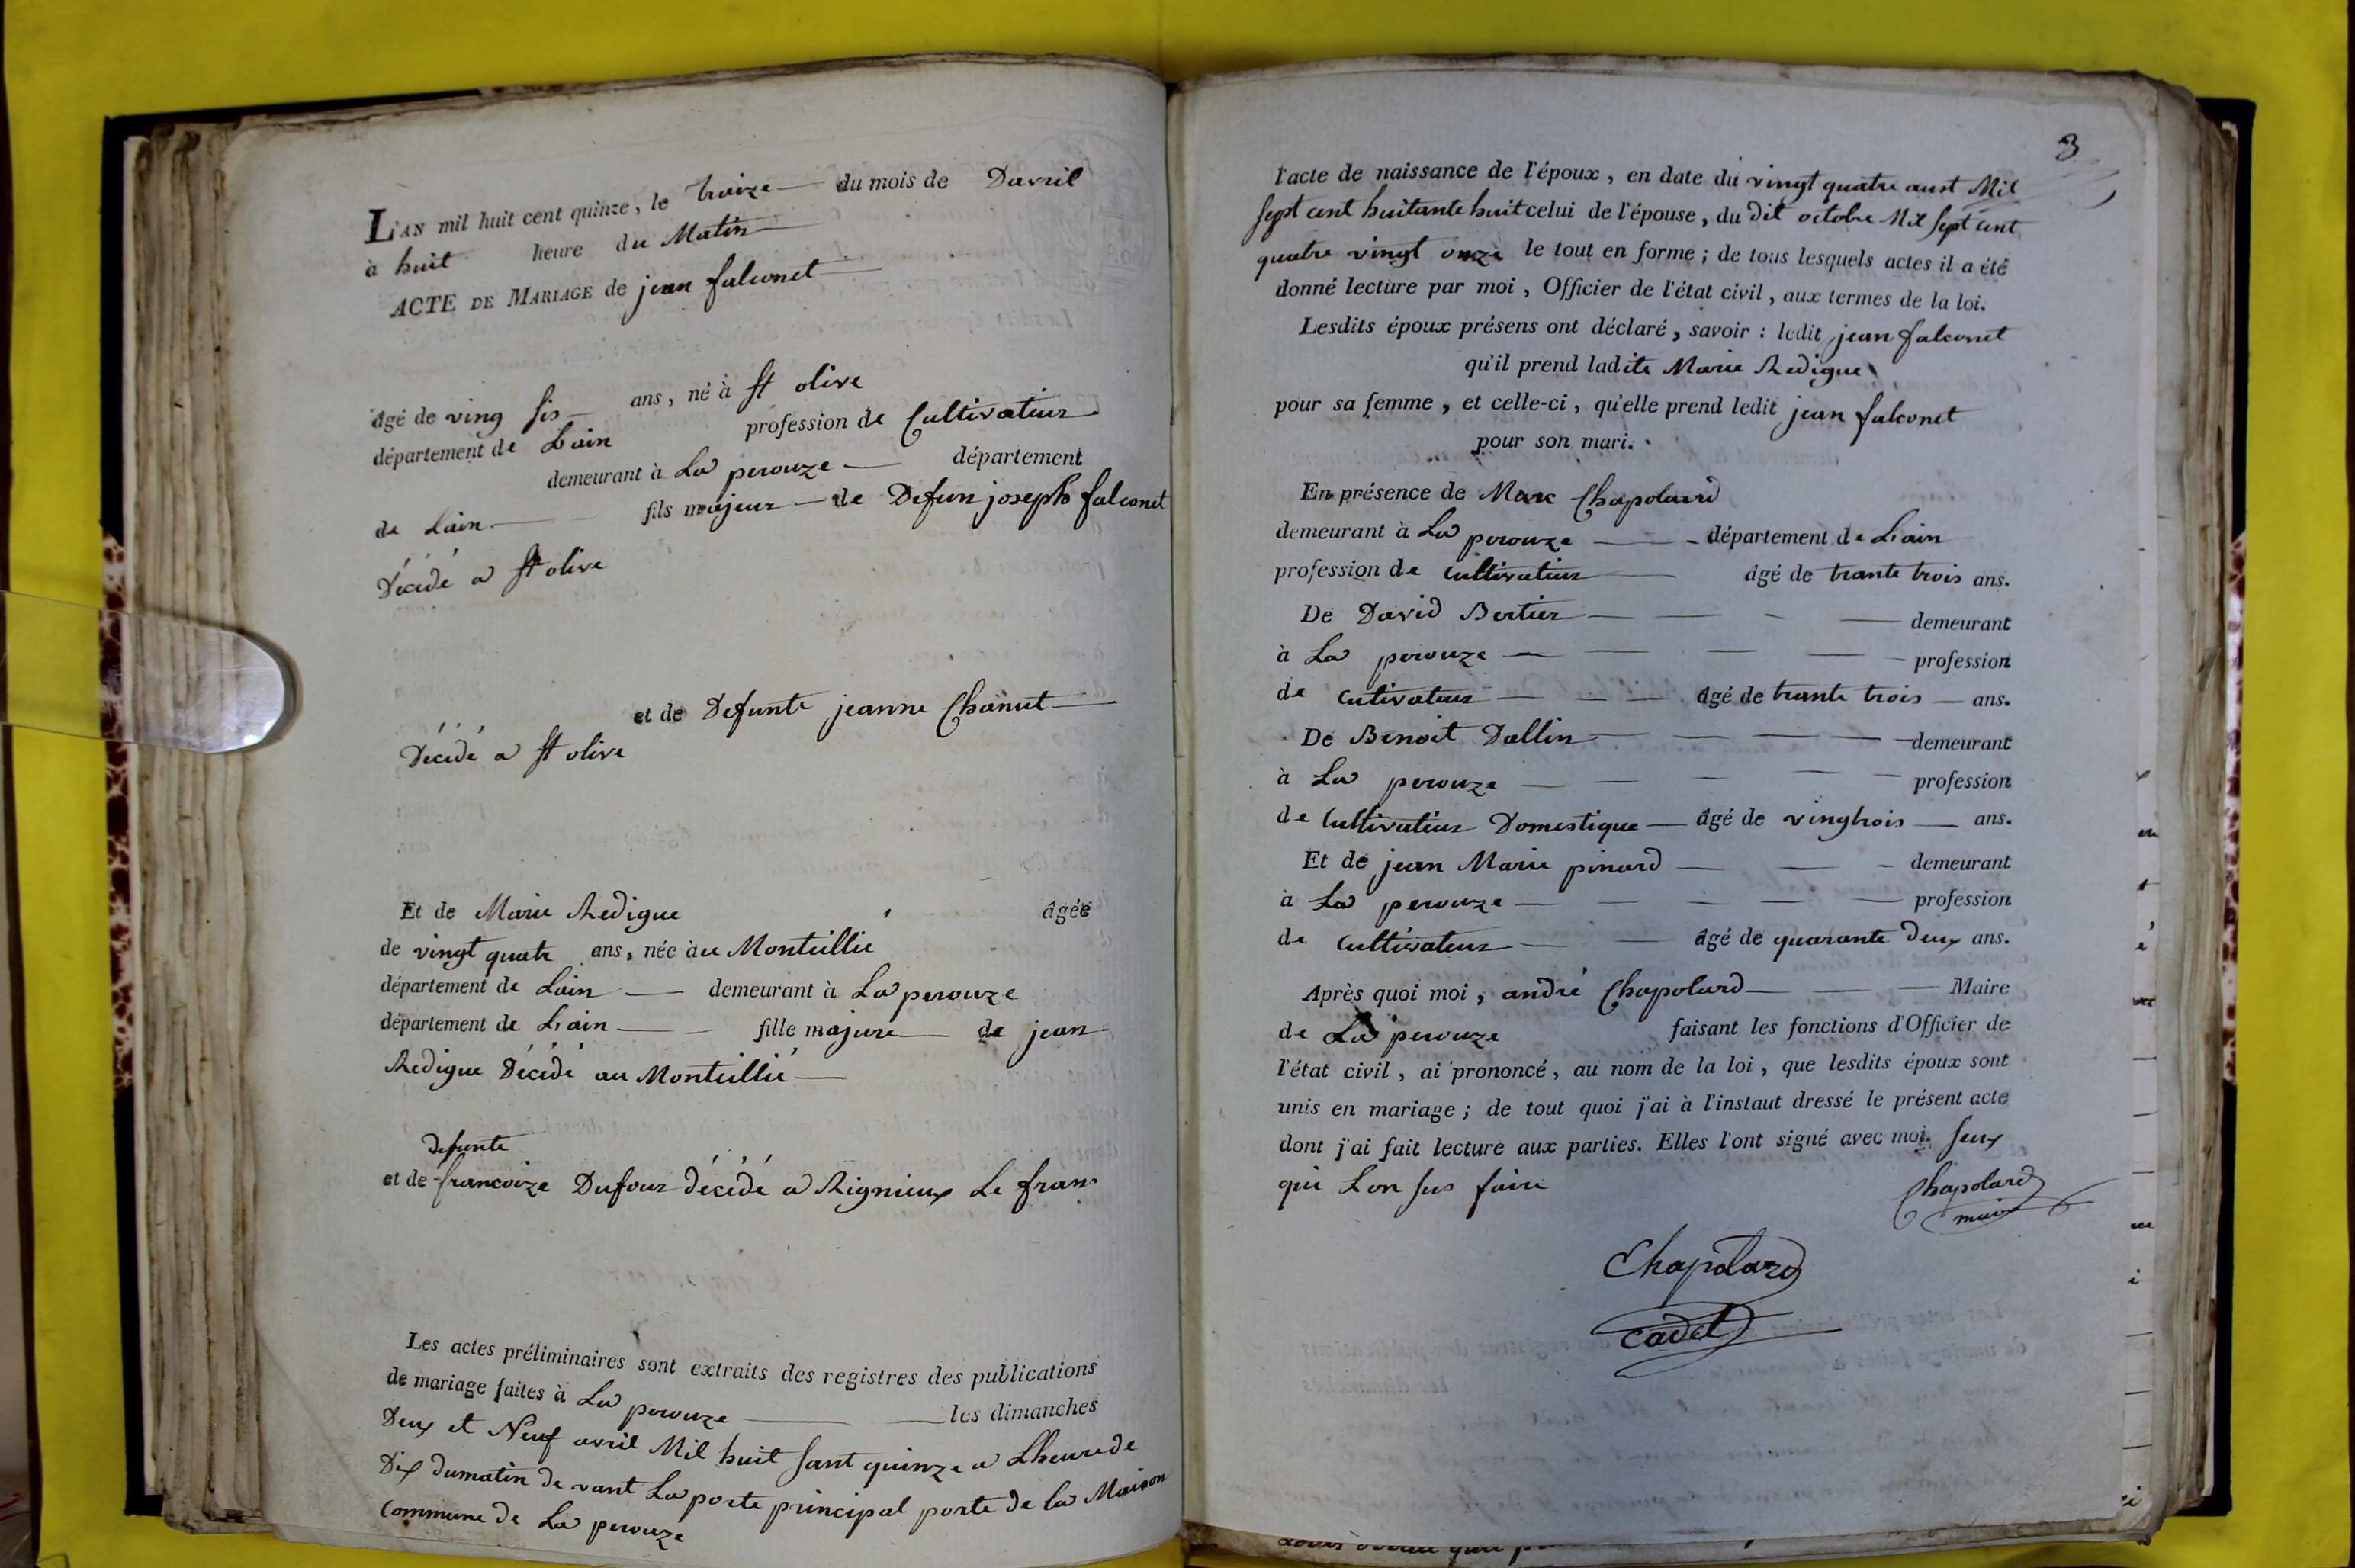 L'AN mil huit cent quinze, le traize du mois de Davril
à huit heure du Matin
ACTE DE MARIAGE de jean falconet
âgé de ving sis ans, né à st olive
département de Lain profession de Cultivateur
demeurant à La perouze département
de Lain fils majeur de Defun joseph falconet
Décédé a st olive
et de Defunte jeanne Chanut
Décédé a st olive
Et de Marie Redigue âgée
de vingt quatr ans, née àu Monteillié
département de Lain demeurant à La perouze
département de Lain fille majure de jean
Redigue Décédé au Monteillié
defunte
et de francoize Dufour décédé a Rignieux Le fran
Les actes préliminaires sont extraits des registres des publications
de mariage faites à La perouze les dimanches
Deux et Neuf avril Mil huit sant quinze a Lheure de
Dix dumatin de vant La porte principal porte de la Maison
Commune de La perouze
3
l'acte de naissance de l'époux, en date du vingt quatre aust Mil
sept cent huitante huit celui de l'épouse, du dit octobre Mil sept cent
quatre vingt onze le tout en forme ; de tous lesquels actes il a été
donné lecture par moi, Officier de l'état civil, aux termes de la loi.
Lesdits époux présens ont déclaré, savoir : ledit jean falconet
qu'il prend ladite Marie Redigue
pour sa femme, et celle-ci, qu'elle prend ledit jean falconet
pour son mari.
En présence de Marc Chapolard
demeurant à La perouze département de Lain
profession de cultivateur âgé de trante trois ans.
De David Bertier demeurant
à La perouze profession
de cutivateur âgé de trante trois ans.
De Benoit Dallin demeurant
à La perouze profession
de Cultivateur Domestique âgé de vingtrois ans.
Et de jean Marie pinard demeurant
à La perouze profession
de cultivateur âgé de quarante deux ans.
Après quoi moi, andré Chapolard Maire
de La perouze faisant les fonctions d'Officier de
l'état civil, ai prononcé, au nom de la loi, que lesdits époux sont
unis en mariage ; de tout quoi j'ai à l'instaut dressé le présent acte
dont j'ai fait lecture aux parties. Elles l'ont signé avec moi. seux
qui Lon sus faire
Chapolard
maire
Chapolard
cadet